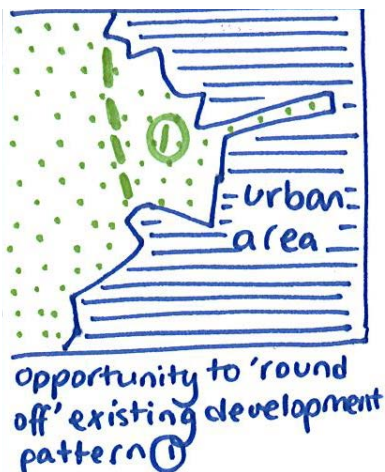 ①
urban
area
opportunity to 'round
off' existing development
pattern ①